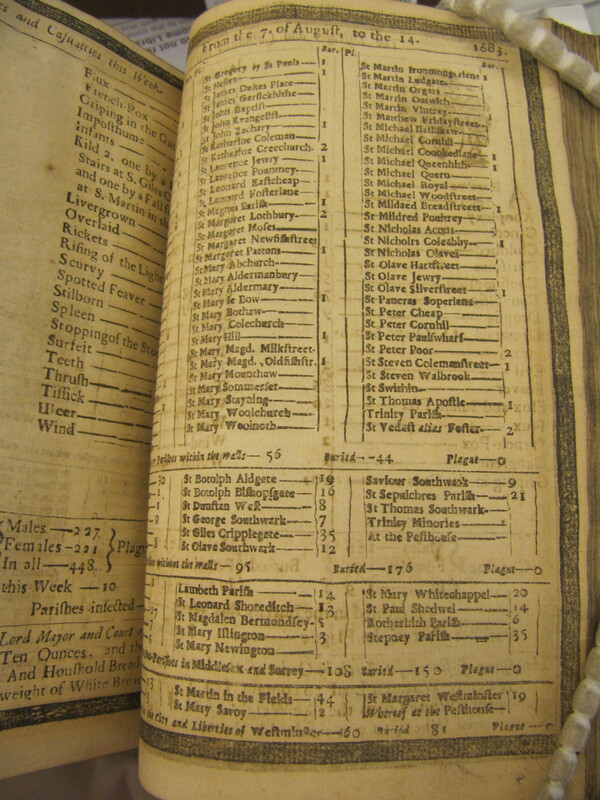 and Casualties this Week.
Flux
French-Pox
Griping in the
Imposthume
Infants
Kild 2. one by a
Stairs at S. Giles
and one by a Fall
at S. Martin in the
Livergrown
Overlaid
Rickets
Rising of the Lights
Scurvy
Spotted Feaver
Stilborn
Spleen
Stopping of the Sto
Surfeit
Teeth
Thrush
Tissick
Ulcer
Wind
Males — 227
Females — 221
In all — 448
Plagu
this Week — 10
Parishes infected
Lord Mayor and Court o
Ten Ounces, and th
And Houshold Bread
weight of White Bre
From the 7. of August, to the 14. 1683.
Bur. Pl.
St Gregory by St Pauls — 1
St Hellen
St James Dukes Place
St James Garlickhithe
St John Baptist
St John Evangelist
St John Zachary
St Katharine Coleman
St Katharine Creechurch — 2
St Laurence Jewry — 1
St Laurence Pountney
St Leonard Eastcheap
St Leonard Fosterlane
St Magnus Parish — 1
St Margaret Lothbury — 2
St Margaret Moses
St Margaret Newfishstreet
St Margaret Pattons — 1
St Mary Abchurch
St Mary Aldermanbury
St Mary Aldermary
St Mary le Bow — 1
St Mary Bothaw
St Mary Colechurch
St Mary Hill — 1
St Mary Magd. Milkstreet
St Mary Magd. Oldfishstr. 1
St Mary Mounthaw
St Mary Sommerset
St Mary Stayning
St Mary Woolchurch
St Mary Woolnoth
Bur.
St Martin Ironmongerlane 1
St Martin Ludgate
St Martin Organs
St Martin Outwich
St Martin Vintrey
St Matthew Fridaystreet
St Michael Bassishaw
St Michael Cornhil
St Michael Crookedlane
St Michael Queenhith — 1
St Michael Quern
St Michael Royal
St Michael Woodstreet
St Mildred Breadstreet — 1
St Mildred Poultrey
St Nicholas Acons
St Nicholas Coleabby — 1
St Nicholas Olaves
St Olave Hartstreet
St Olave Jewry
St Olave Silverstreet — 1
St Pancras Soperlane
St Peter Cheap
St Peter Cornhil
St Peter Paulswharf
St Peter Poor — 2
St Steven Colemanstreet — 1
St Steven Walbrook
St Swithin
St Thomas Apostle — 1
Trinity Parish
St Vedast alias Foster — 2
Parishes within the walls — 56 Buried — 44 Plague — 0
St Botolph Aldgate — 19
St Botolph Bishopsgate — 16
St Dunstan West — 8
St George Southwark — 7
St Giles Cripplegate — 35
St Olave Southwark — 12
Saviour Southwark — 9
St Sepulchres Parish — 21
St Thomas Southwark
Trinity Minories
At the Pesthouse
without the walls — 95 Buried — 176 Plague — 0
Lambeth Parish — 14
St Leonard Shoreditch — 13
St Magdalen Bermondsey — 5
St Mary Islington — 3
St Mary Newington
St Mary Whitechappel — 20
St Paul Shadwel — 14
Rotherhith Parish — 6
Stepney Parish — 35
Parishes in Middlesex and Surrey — 108 Buried — 150 Plague — 0
St Martin in the Fields — 44
St Mary Savoy — 2
St Margaret Westminster 19
Whereof at the Pesthouse
the City and Liberties of Westminster — 60 Buried 81 Plague — 0